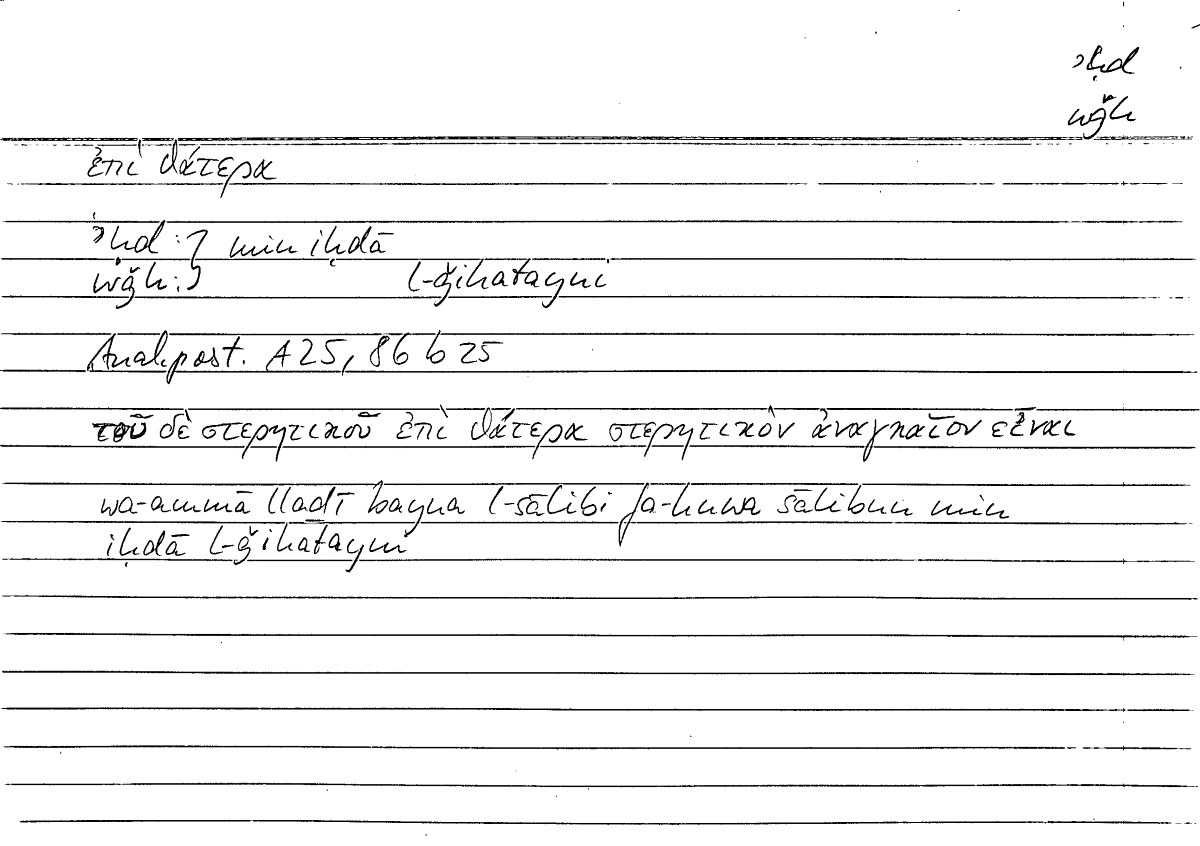 ʾḥd
wǧh
ἐπὶ θάτερα
ʾḥd : } min iḥdā
wǧh : } l-ǧihatayni
Anal. post. A 25, 86 b 25
τοῦ δὲ στερητικοῦ ἐπὶ θάτερα στερητικὸν ἀναγκαῖον εἶναι
wa-ammā lladī bayna l-sālibi fa-huwa sālibun min
iḥdā l-ǧihatayni